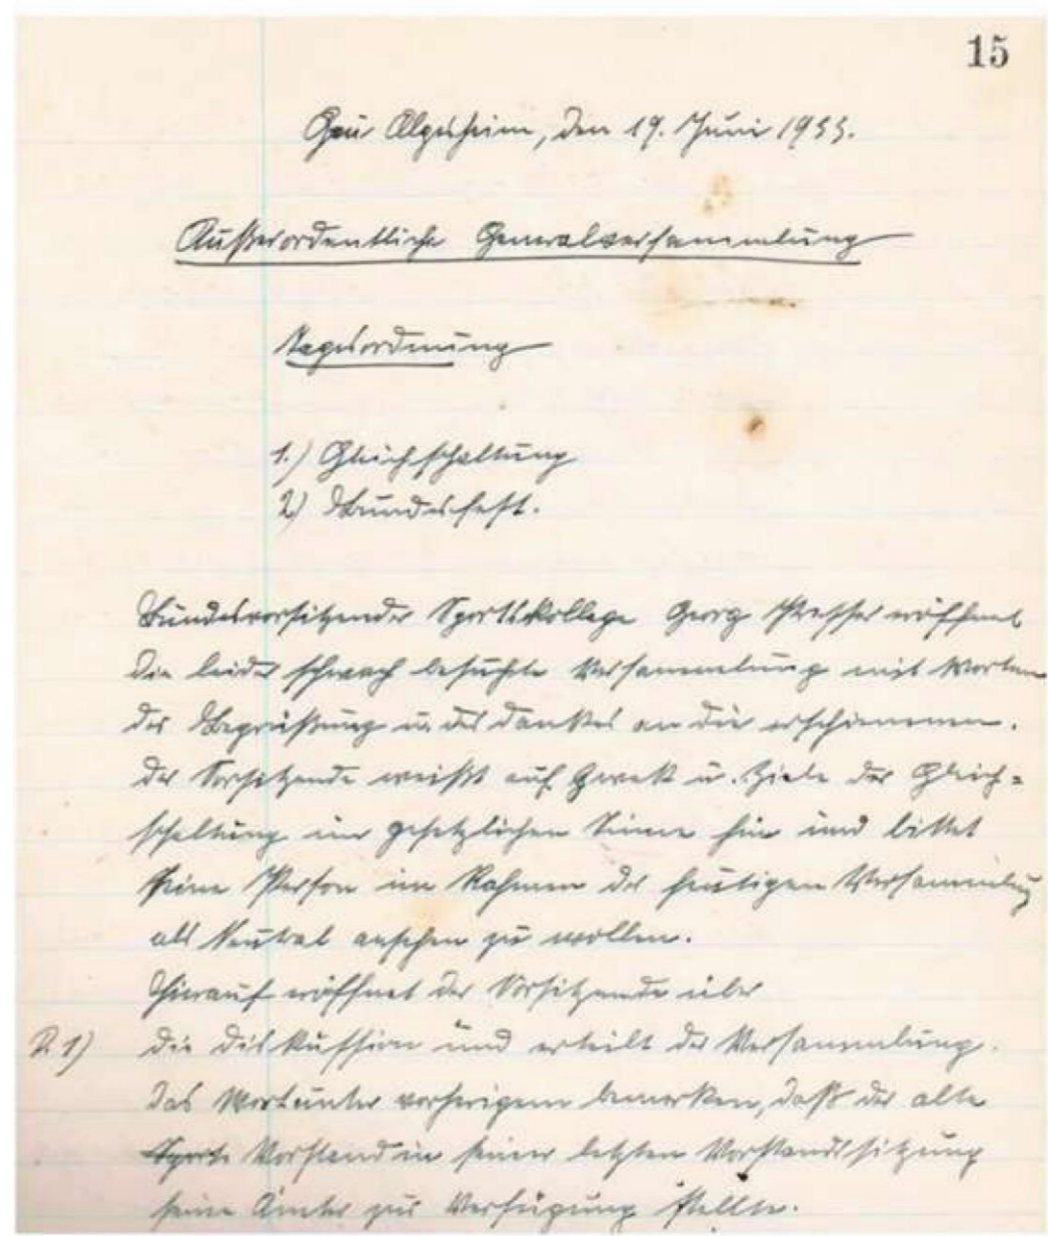 15
Gau Algesheim, den 19. Juni 1933.
Außerordentliche Generalversammlung
Tagesordnung
1.) Gleichschaltung
2) Bundesfest.
Bundesvorsitzender Sportskollege Georg Presser eröffnet
die leider schwach besuchte Versammlung mit Worten
der Begrüßung u. des Dankes an die erschienenen.
Der Vorsitzende weißt auf Zweck u. Ziele der Gleich=
schaltung im gesetzlichen Sinne hin und bittet
seine Person im Rahmen der heutigen Versammlung
als Neutral ansehen zu wollen.
Hierauf eröffnet der Vorsitzende über
P. 1) die Diskussion und erteilt der Versammlung.
das Wort unter vorherigem bemerken, daß der alte
Sports Vorstand in seiner letzten Vorstandssitzung
seine Ämter zur Verfügung stellte.